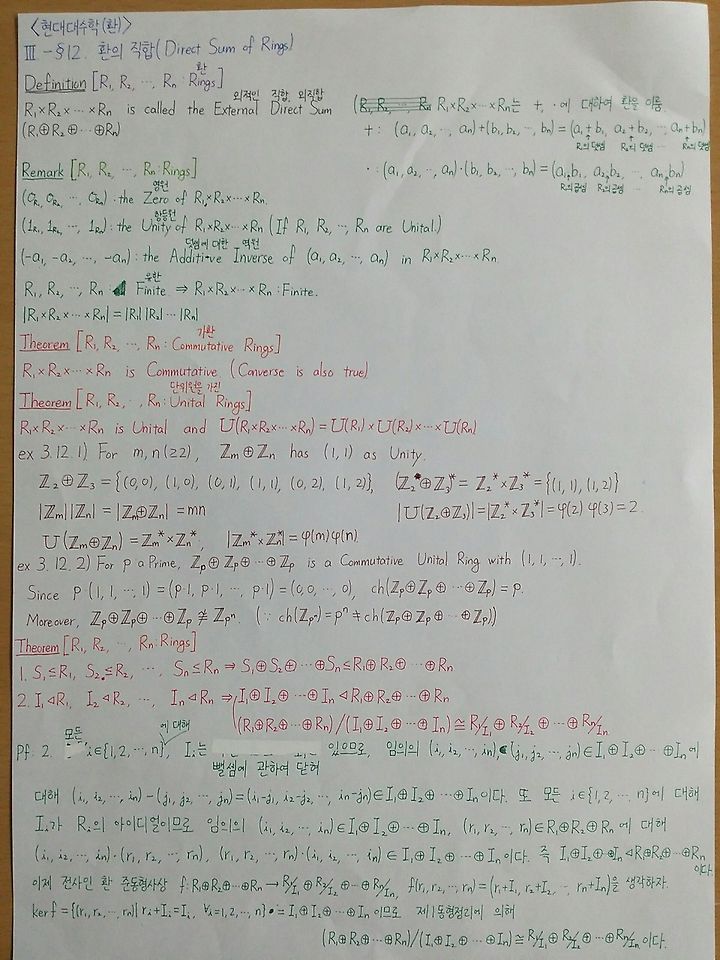 <현대대수학(환)>
III-§12. 환의 직합(Direct Sum of Rings)
환
Definition [R₁, R₂, ⋯, Rₙ : Rings]
외적인 직합, 외직합
R₁×R₂×⋯×Rₙ is called the External Direct Sum
(R₁⊕R₂⊕⋯⊕Rₙ)
( R₁×R₂×⋯×Rₙ는 +, ·에 대하여 환을 이룸
+ : (a₁, a₂, ⋯, aₙ)+(b₁, b₂, ⋯, bₙ)=(a₁+b₁, a₂+b₂, ⋯, aₙ+bₙ)
R₁의 덧셈 R₂의 덧셈 ⋯ Rₙ의 덧셈
· : (a₁, a₂, ⋯, aₙ)·(b₁, b₂, ⋯, bₙ)=(a₁b₁, a₂b₂, ⋯, aₙbₙ)
R₁의 곱셈 R₂의 곱셈 ⋯ Rₙ의 곱셈
Remark [R₁, R₂, ⋯, Rₙ : Rings]
영원
(0_R₁, 0_R₂, ⋯, 0_Rₙ) : the Zero of R₁×R₂×⋯×Rₙ.
항등원
(1_R₁, 1_R₂, ⋯, 1_Rₙ) : the Unity of R₁×R₂×⋯×Rₙ (If R₁, R₂, ⋯, Rₙ are Unital.)
덧셈에 대한 역원
(-a₁, -a₂, ⋯, -aₙ) : the Additive Inverse of (a₁, a₂, ⋯, aₙ) in R₁×R₂×⋯×Rₙ.
유한
R₁, R₂, ⋯, Rₙ : Finite. ⇒ R₁×R₂×⋯×Rₙ : Finite.
|R₁×R₂×⋯×Rₙ|=|R₁||R₂|⋯|Rₙ|
가환
Theorem [R₁, R₂, ⋯, Rₙ : Commutative Rings]
R₁×R₂×⋯×Rₙ is Commutative (Converse is also true)
단위원을 가진
Theorem [R₁, R₂, ⋯, Rₙ : Unital Rings]
R₁×R₂×⋯×Rₙ is Unital and U(R₁×R₂×⋯×Rₙ)=U(R₁)×U(R₂)×⋯×U(Rₙ)
ex 3.12.1) For m, n(≥2), ℤm⊕ℤn has (1, 1) as Unity.
ℤ₂⊕ℤ₃={(0,0), (1,0), (0,1), (1,1), (0,2), (1,2)}, (ℤ₂⊕ℤ₃)*=ℤ₂*×ℤ₃*={(1,1), (1,2)}
|ℤm||ℤn|=|ℤm⊕ℤn|=mn |U(ℤ₂⊕ℤ₃)|=|ℤ₂*×ℤ₃*|=φ(2)φ(3)=2.
U(ℤm⊕ℤn)=ℤm*×ℤn*, |ℤm*×ℤn*|=φ(m)φ(n)
ex 3.12.2) For p a Prime, ℤp⊕ℤp⊕⋯⊕ℤp is a Commutative Unital Ring with (1, 1, ⋯, 1).
Since p·(1, 1, ⋯, 1)=(p·1, p·1, ⋯, p·1)=(0, 0, ⋯, 0), ch(ℤp⊕ℤp⊕⋯⊕ℤp)=p.
Moreover, ℤp⊕ℤp⊕⋯⊕ℤp≇ℤpⁿ. (∵ ch(ℤpⁿ)=pⁿ≠ch(ℤp⊕ℤp⊕⋯⊕ℤp))
Theorem [R₁, R₂, ⋯, Rₙ : Rings]
1. S₁≤R₁, S₂≤R₂, ⋯, Sₙ≤Rₙ ⇒ S₁⊕S₂⊕⋯⊕Sₙ≤R₁⊕R₂⊕⋯⊕Rₙ
2. I₁◁R₁, I₂◁R₂, ⋯, Iₙ◁Rₙ ⇒ I₁⊕I₂⊕⋯⊕Iₙ◁R₁⊕R₂⊕⋯⊕Rₙ
(R₁⊕R₂⊕⋯⊕Rₙ)/(I₁⊕I₂⊕⋯⊕Iₙ)≅R₁/I₁⊕R₂/I₂⊕⋯⊕Rₙ/Iₙ
모든 에 대해
pf. 2. i∈{1, 2, ⋯, n}, Iᵢ는 있으므로, 임의의 (i₁, i₂, ⋯, iₙ), (j₁, j₂, ⋯, jₙ)∈I₁⊕I₂⊕⋯⊕Iₙ에
뺄셈에 관하여 닫혀
대해 (i₁, i₂, ⋯, iₙ)-(j₁, j₂, ⋯, jₙ)=(i₁-j₁, i₂-j₂, ⋯, iₙ-jₙ)∈I₁⊕I₂⊕⋯⊕Iₙ이다. 또 모든 i∈{1, 2, ⋯, n}에 대해
Iᵢ가 Rᵢ의 아이디얼이므로 임의의 (i₁, i₂, ⋯, iₙ)∈I₁⊕I₂⊕⋯⊕Iₙ, (r₁, r₂, ⋯, rₙ)∈R₁⊕R₂⊕⋯⊕Rₙ에 대해
(i₁, i₂, ⋯, iₙ)·(r₁, r₂, ⋯, rₙ), (r₁, r₂, ⋯, rₙ)·(i₁, i₂, ⋯, iₙ)∈I₁⊕I₂⊕⋯⊕Iₙ이다. 즉 I₁⊕I₂⊕⋯⊕Iₙ◁R₁⊕R₂⊕⋯⊕Rₙ
이다.
이제 전사인 환 준동형사상 f: R₁⊕R₂⊕⋯⊕Rₙ→R₁/I₁⊕R₂/I₂⊕⋯⊕Rₙ/Iₙ, f(r₁, r₂, ⋯, rₙ)=(r₁+I₁, r₂+I₂, ⋯, rₙ+Iₙ)을 생각하자.
ker f={(r₁, r₂, ⋯, rₙ)| rᵢ+Iᵢ=Iᵢ, ∀i=1, 2, ⋯, n}=I₁⊕I₂⊕⋯⊕Iₙ이므로 제1동형정리에 의해
(R₁⊕R₂⊕⋯⊕Rₙ)/(I₁⊕I₂⊕⋯⊕Iₙ)≅R₁/I₁⊕R₂/I₂⊕⋯⊕Rₙ/Iₙ이다.